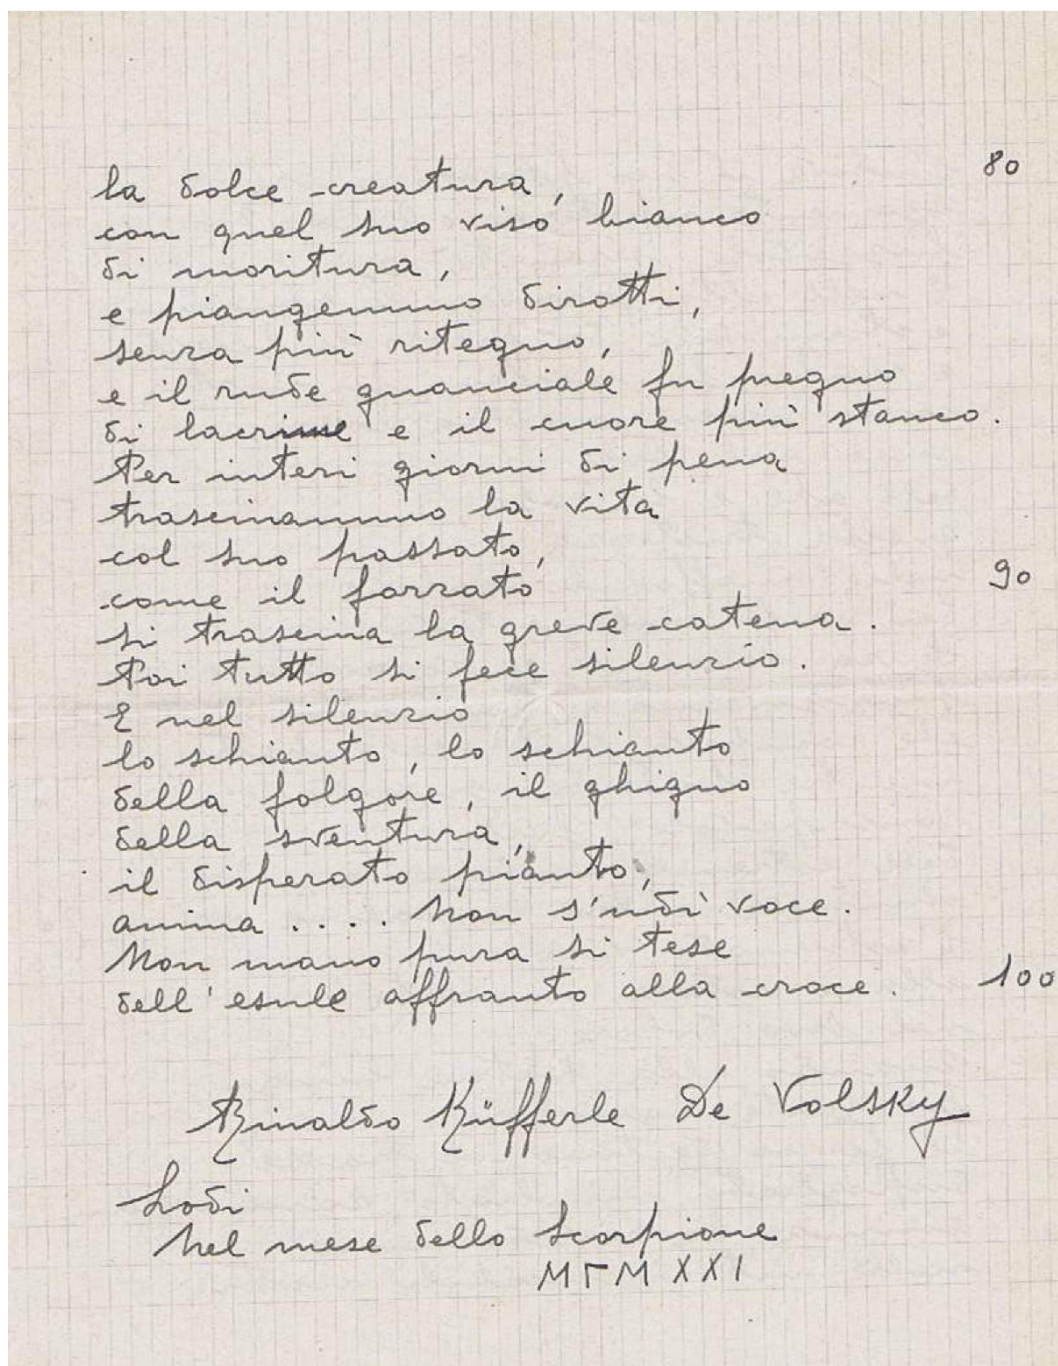 la dolce creatura, 80
con quel suo viso bianco
di moritura,
e piangemmo dirotti,
senza più ritegno,
e il rude guanciale fu pregno
di lacrime e il cuore più stanco.
Per interi giorni di pena
trascinammo la vita
col suo passato,
come il forzato 90
si trascina la greve catena.
Poi tutto si fece silenzio.
E nel silenzio
lo schianto, lo schianto
della folgore, il ghigno
della sventura,
il disperato pianto,
anima .... Non s'udì voce.
Non mano pura si tese
dell'esule affranto alla croce. 100
Rinaldo Küfferle De Volsky
Lodi
Nel mese dello Scorpione
MCMXXI